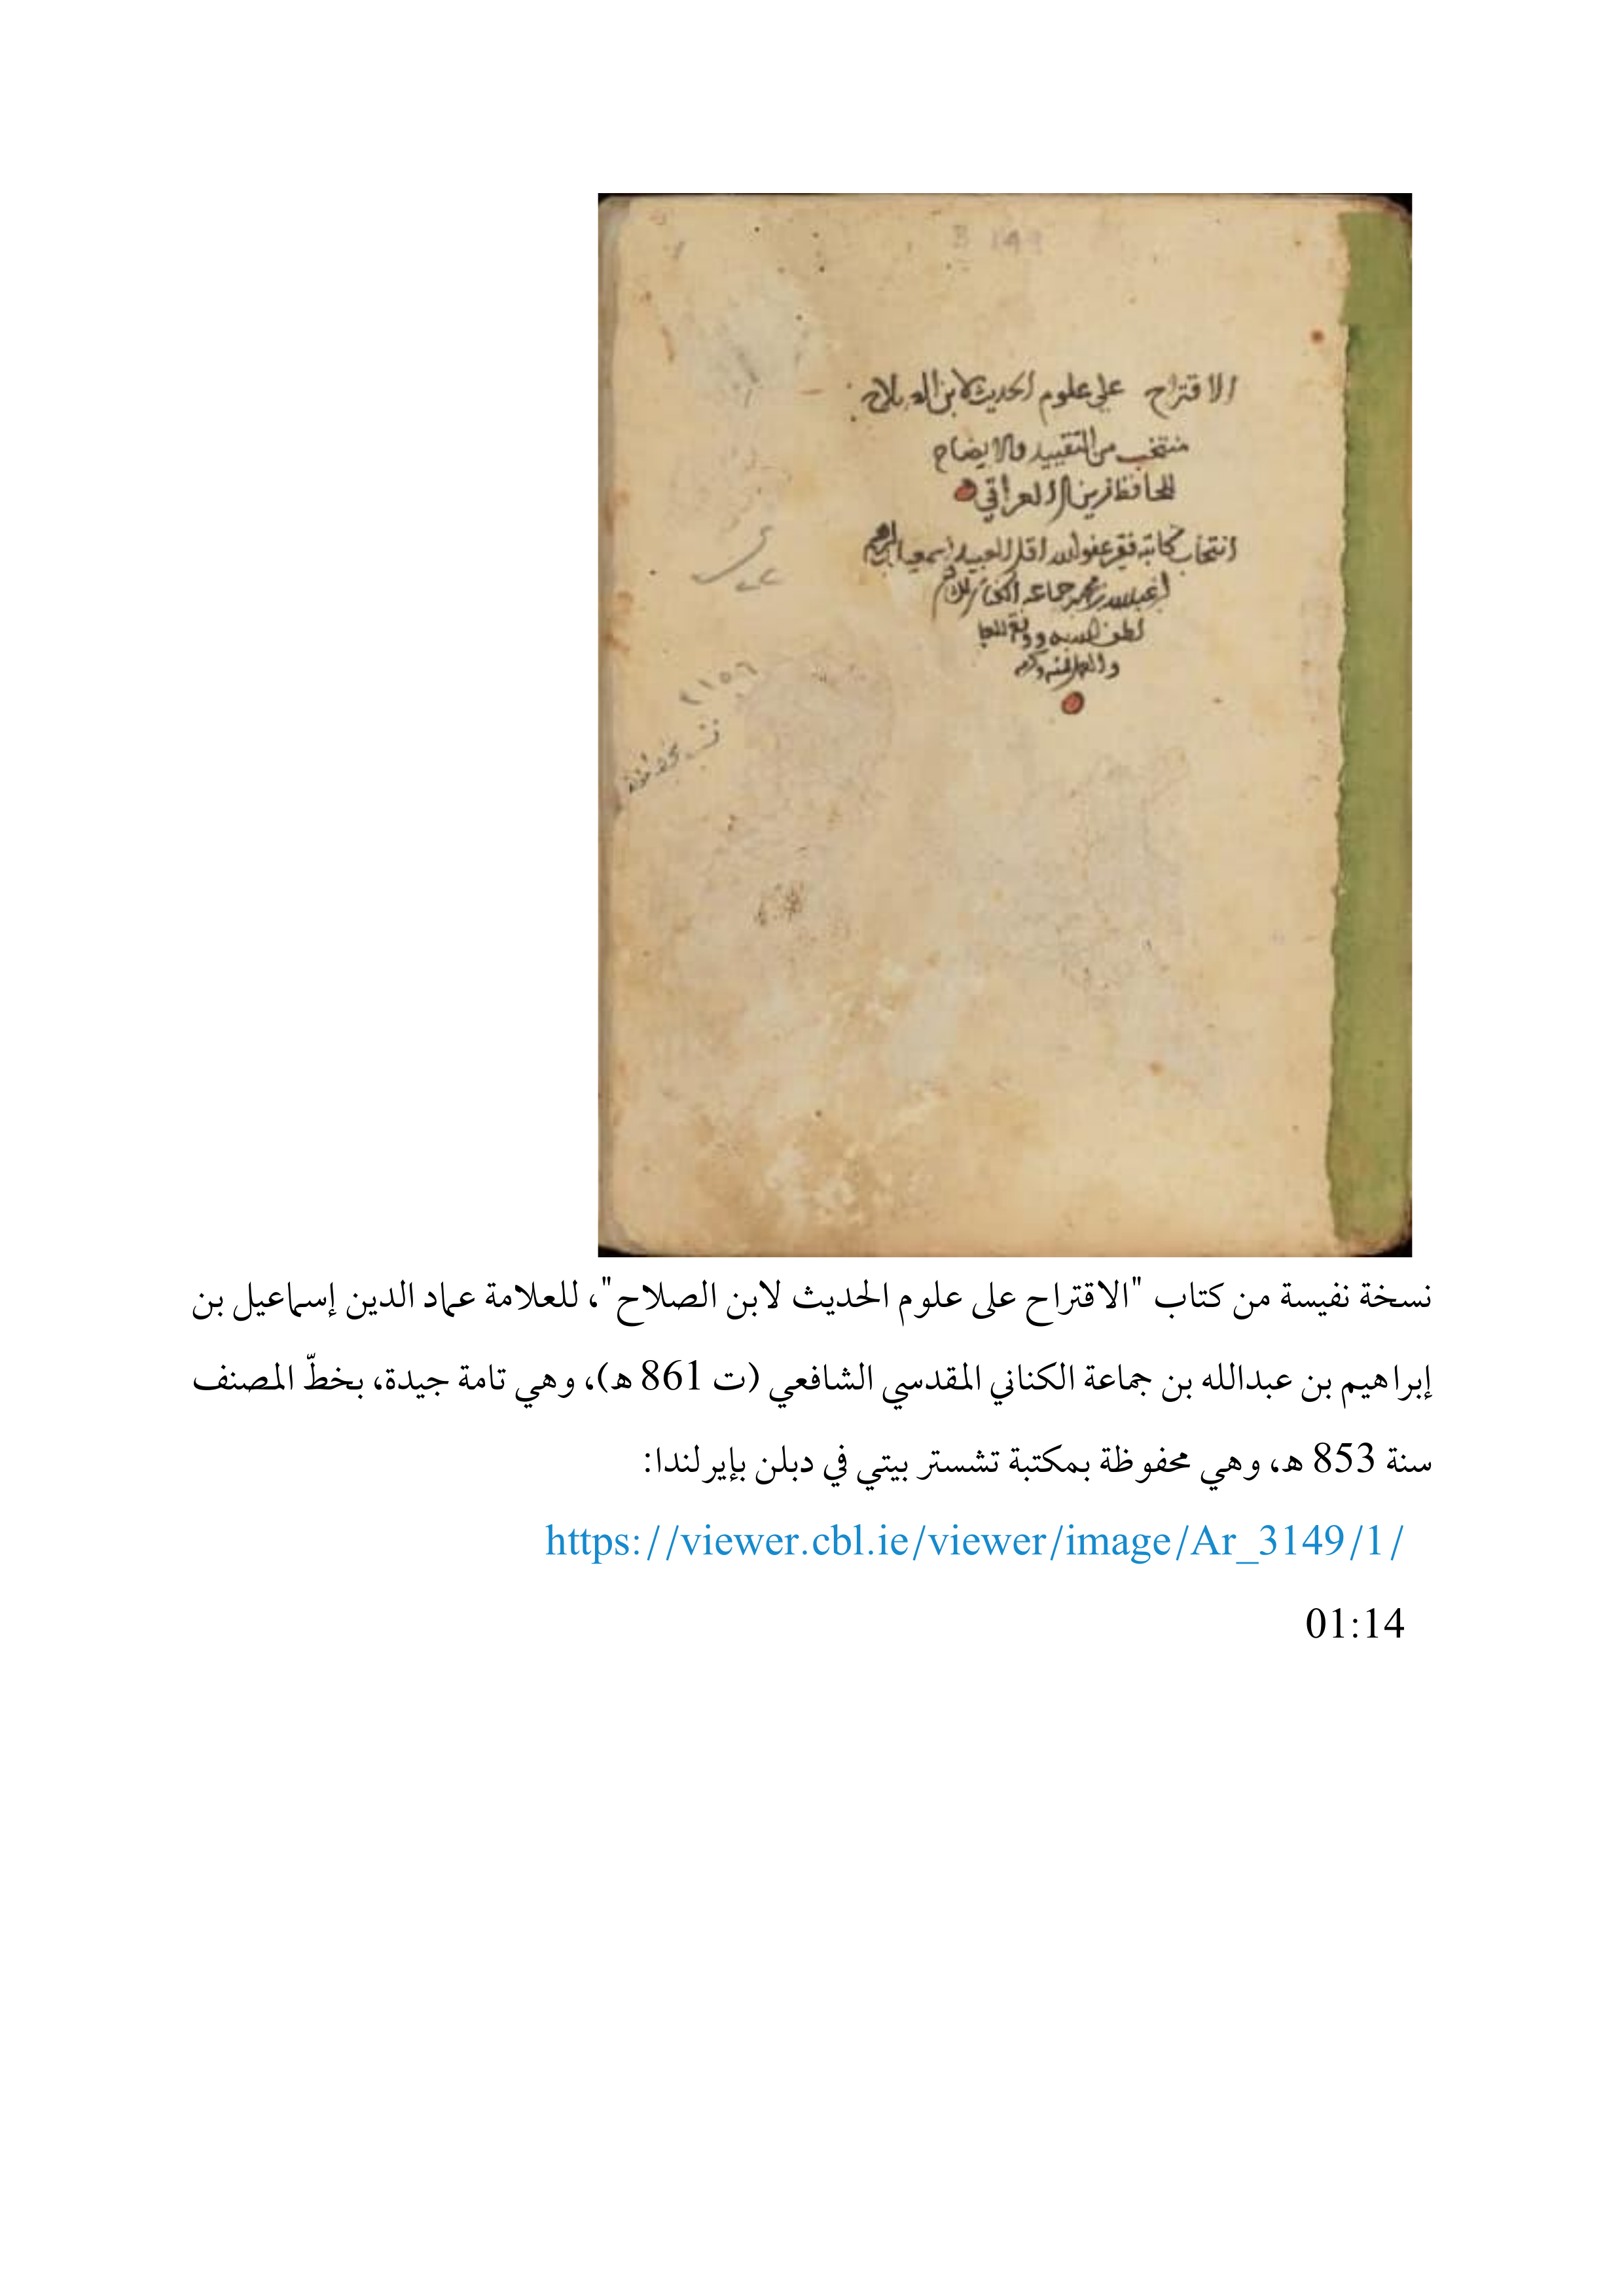 3149
الاقتراح على علوم الحديث لابن الصلاح
منتخب من التقييد والايضاح
للحافظ زين العراقي
انتخاب كاتبه فقير عفو الله اقل العبيد اسمعيل ابرهيم
ابن عبدالله بن محمد جماعه الكناني
لطف الله به
٢١٥٦
نسخة نفيسة من كتاب "الاقتراح على علوم الحديث لابن الصلاح"، للعلامة عماد الدين إسماعيل بن
إبراهيم بن عبدالله بن جماعة الكناني المقدسي الشافعي (ت 861 هـ)، وهي تامة جيدة، بخطّ المصنف
سنة 853 هـ، وهي محفوظة بمكتبة تشستر بيتي في دبلن بإيرلندا:
https://viewer.cbl.ie/viewer/image/Ar_3149/1/
01:14